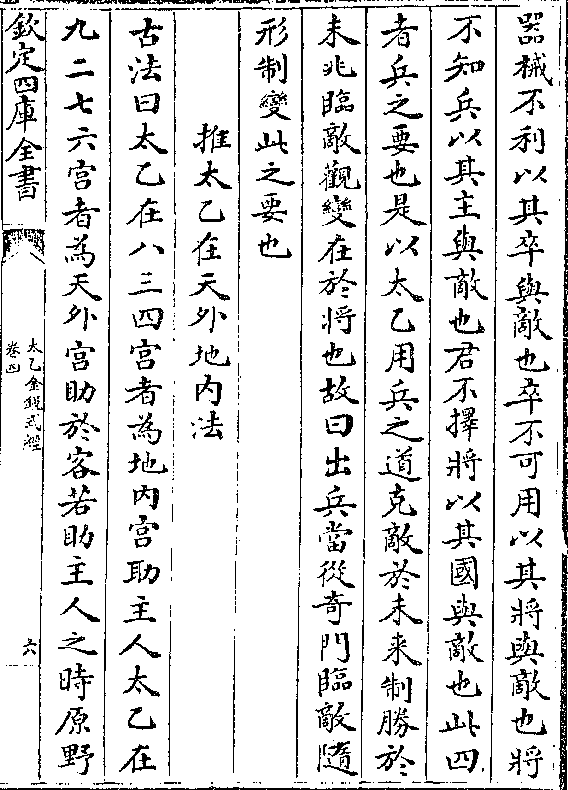 器械不利以其卒與敵也卒不可用以其將與敵也將
不知兵以其主與敵也君不擇將以其國與敵也此四
者兵之要也是以太乙用兵之道克敵於未来制勝於
未兆臨敵觀變在於將也故曰出兵當從奇門臨敵隨
形制變此之要也
推太乙在天外地内法
古法曰太乙在八三四宫者為地内宫助主人太乙在
九二七六宫者為天外宫助於客若助主人之時原野
欽定四庫全書
太乙金鏡式經
卷四
六